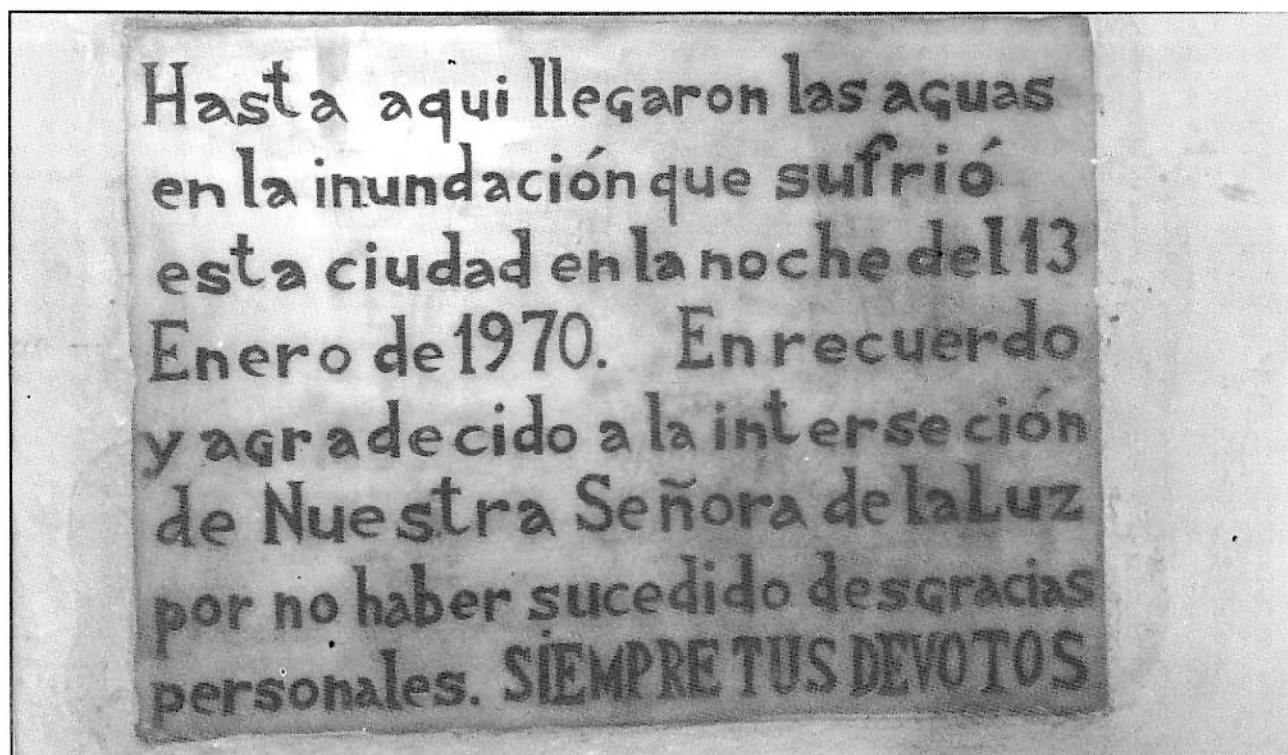 Hasta aqui llegaron las aguas
en la inundación que sufrió
esta ciudad en la noche del 13
Enero de 1970. En recuerdo
y agradecido a la interseción
de Nuestra Señora de la Luz
por no haber sucedido desgracias
personales. SIEMPRE TUS DEVOTOS